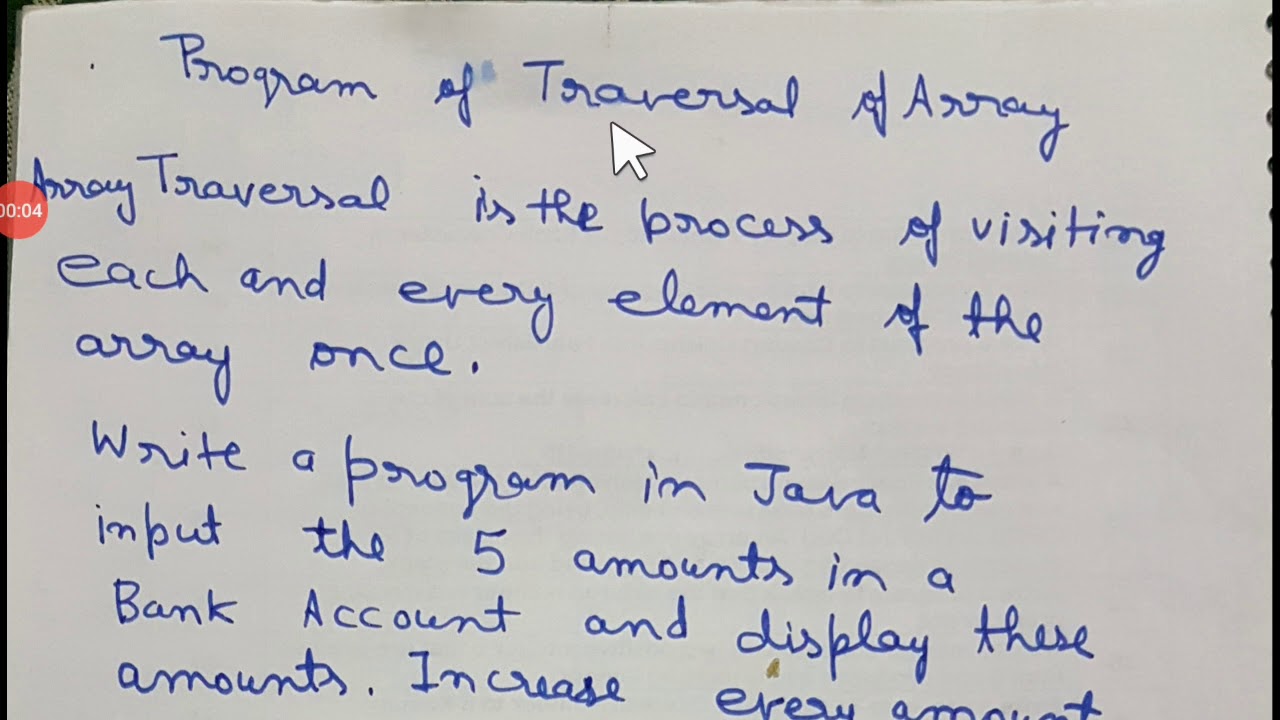 Program of Traversal of Array
Array Traversal is the process of visiting
each and every element of the
array once.
Write a program in Java to
input the 5 amounts in a
Bank Account and display these
amounts. Increase every amount
00:04